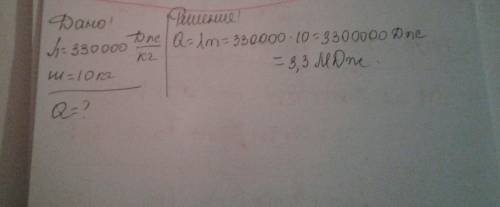 Дано!
λ=330000 Дж/кг
m=10кг
Q=?
Решение!
Q=λm=330000·10=3300000 Дж
=3,3 МДж.